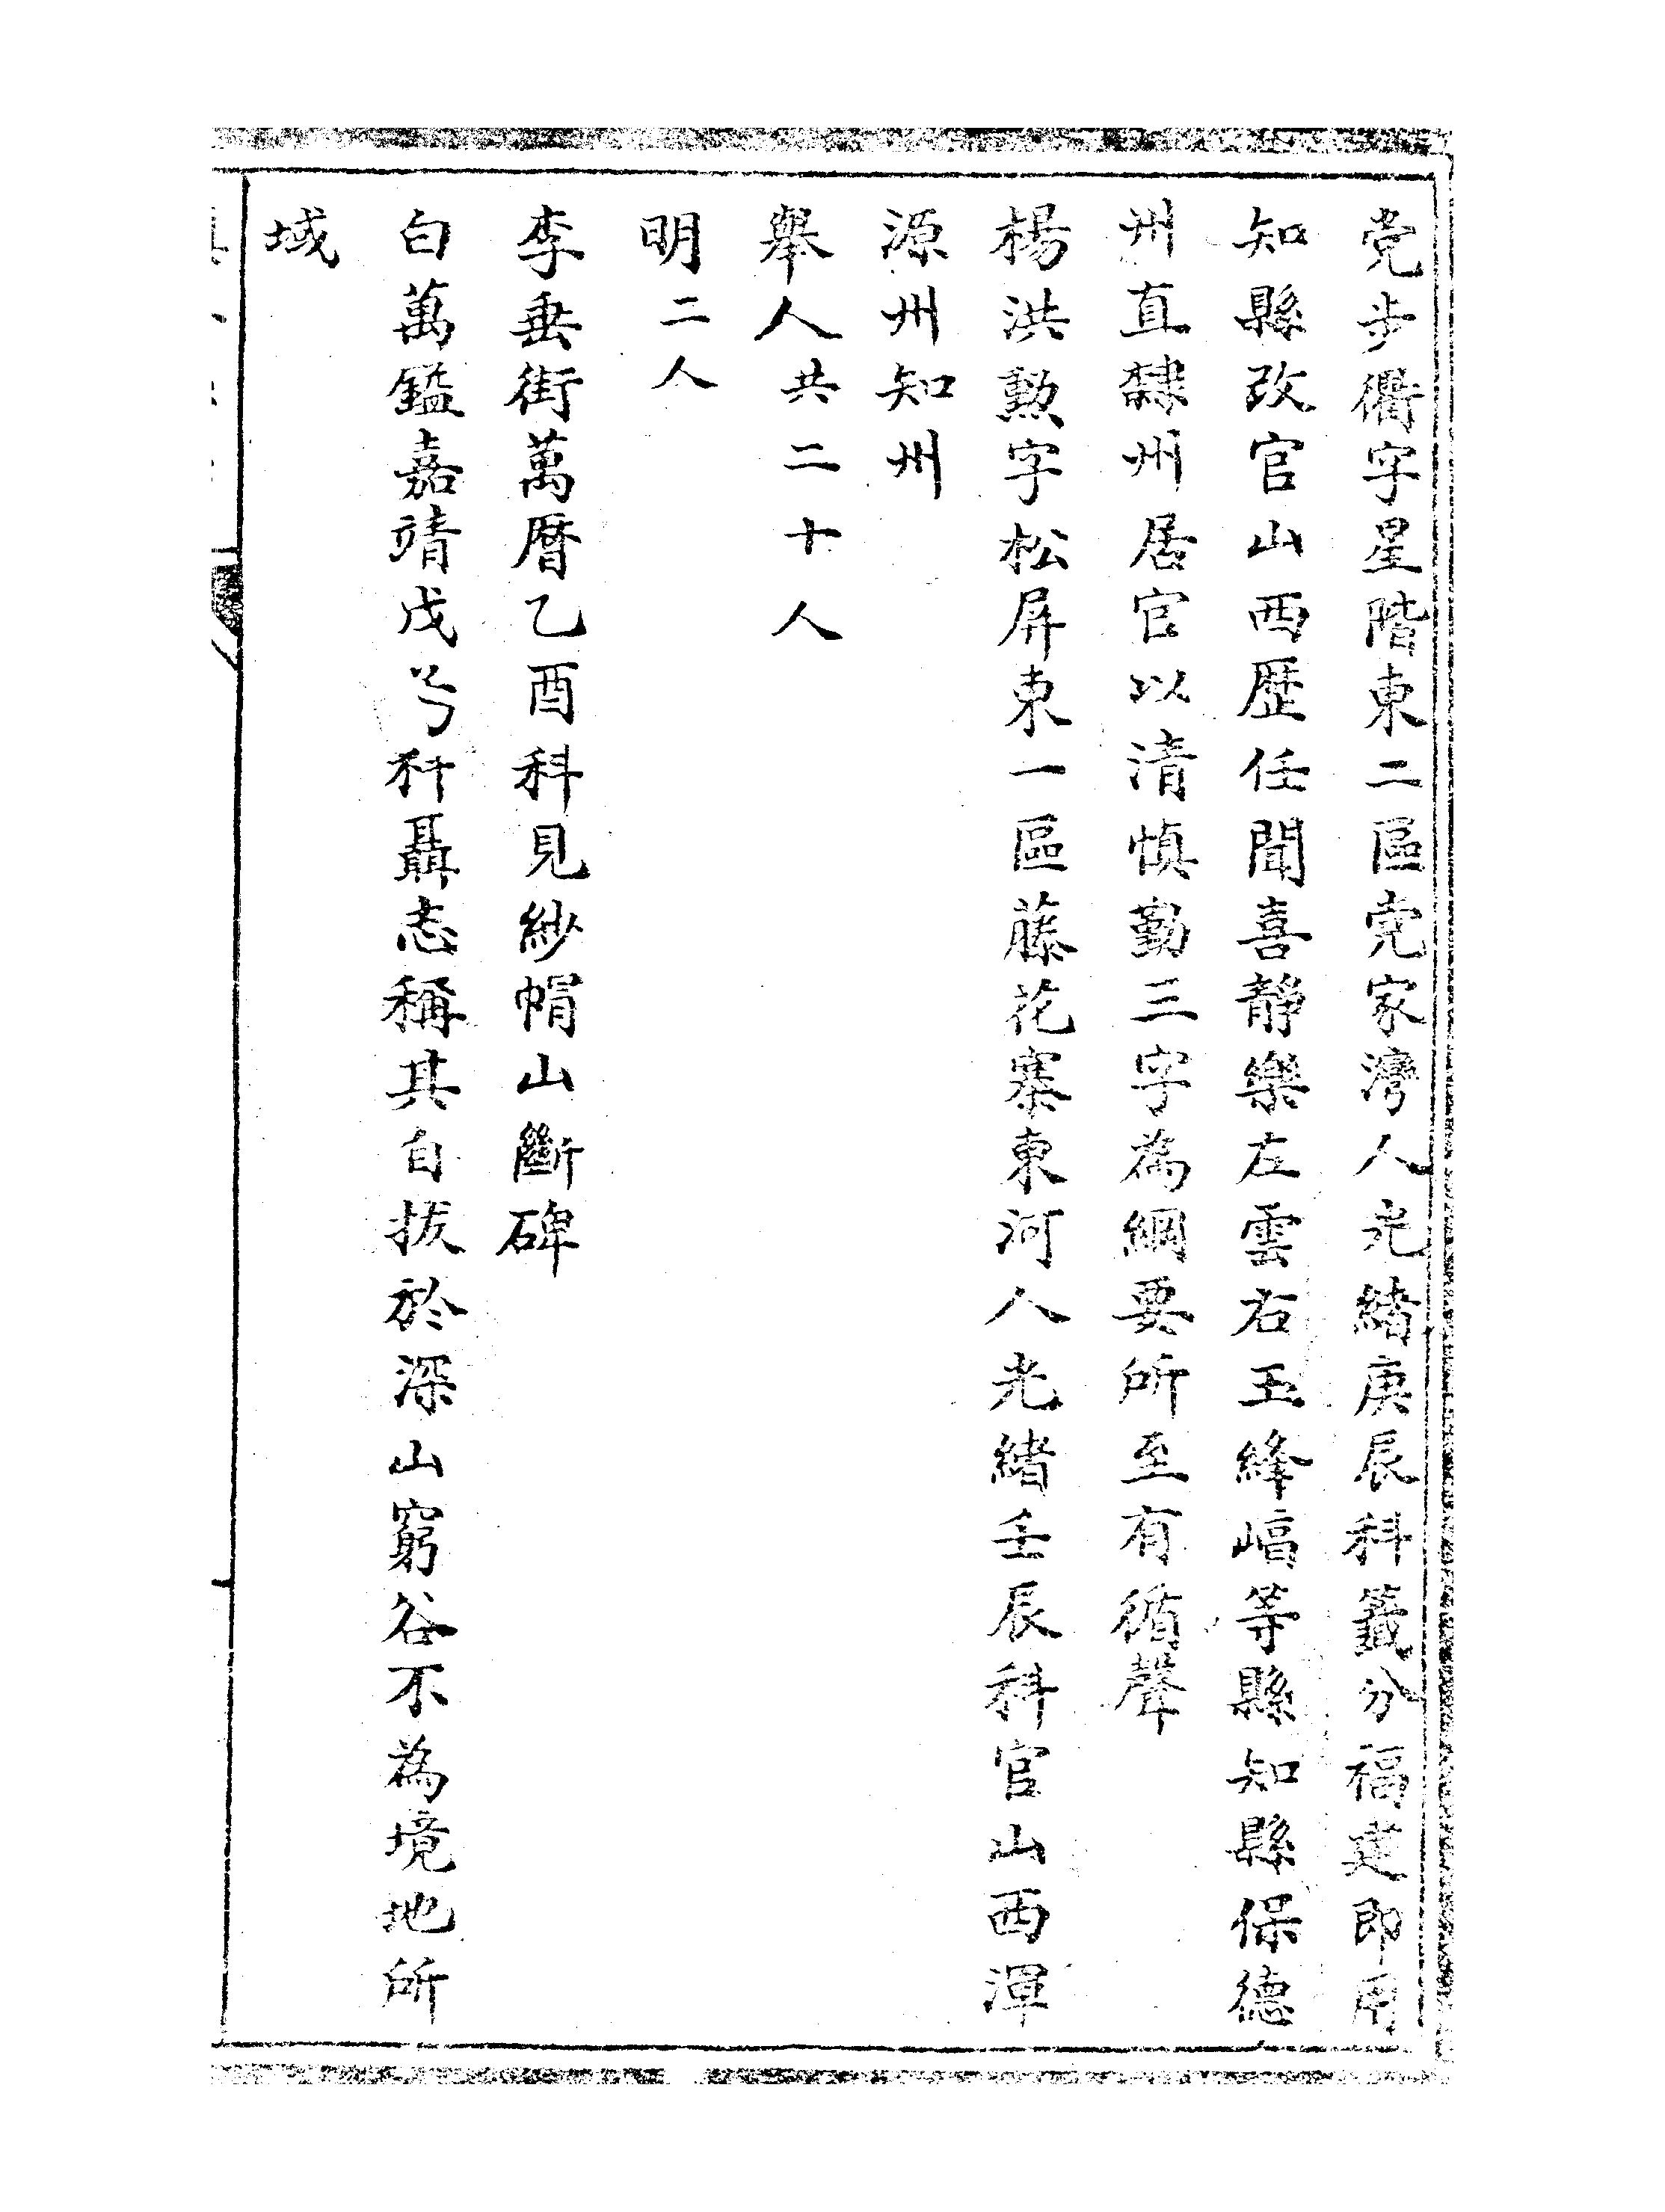 党步衢字星階東二區党家灣人光緒庚辰科籤分福建即用
知縣改官山西歷任聞喜靜樂左雲右玉絳嶇等縣知縣保德
州直隸州居官以清慎勤三字為綱要所至有循聲
楊洪勲字松屏東一區藤花寨東河人光緒壬辰科官山西渾
源州知州
舉人共二十人
明二人
李垂街萬曆乙酉科見紗帽山斷碑
白萬鎰嘉靖戊科聶志稱其自拔於深山窮谷不為境地所
域